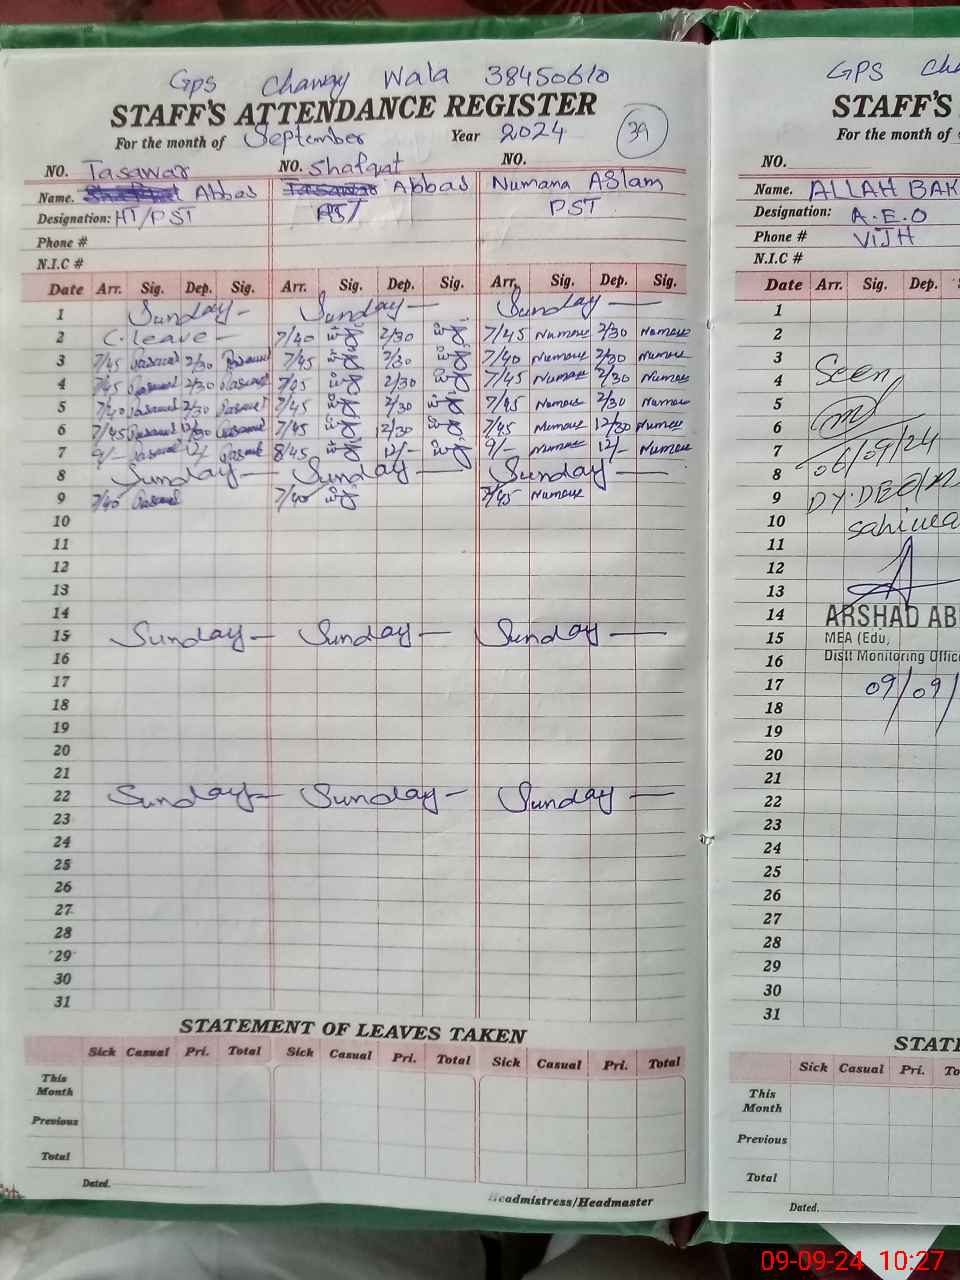 GPS Chanay Wala 38450610
STAFF'S ATTENDANCE REGISTER
For the month of September Year 2024
39
NO. Tasawar NO. Shafqat NO.
Name. Abbas Tasawar Abbas Numana Aslam
Designation: HT/PST PST PST
Phone #
N.I.C #
Date Arr. Sig. Dep. Sig. Arr. Sig. Dep. Sig. Arr. Sig. Dep. Sig.
1 Sunday - Sunday — Sunday —
2 C.leave - 7/40 2/30 7/45 Numana 2/30 Numana
3 7/45 2/30 7/45 2/30 7/40 Numana 2/30 Numana
4 7/45 2/30 7/45 2/30 7/45 Numana 2/30 Numana
5 7/40 2/30 7/45 2/30 7/45 Numana 2/30 Numana
6 7/45 12/30 7/45 12/30 7/45 Numana 12/30 Numana
7 9/- 12/- 8/45 12/- 9/- Numana 12/- Numana
8 Sunday — Sunday — Sunday —
9 7/40 7/40 7/45 Numana
10
11
12
13
14
15 Sunday — Sunday — Sunday —
16
17
18
19
20
21
22 Sunday — Sunday - Sunday —
23
24
25
26
27
28
29
30
31
STATEMENT OF LEAVES TAKEN
Sick Casual Pri. Total Sick Casual Pri. Total Sick Casual Pri. Total
This Month
Previous
Total
Dated.
Headmistress/Headmaster
GPS Cha
STAFF'S
For the month of
NO.
Name. ALLAH BAK
Designation: A.E.O
Phone # VIJH
N.I.C #
Date Arr. Sig. Dep. S
1
2
3
4 Seen
5
6
7
8 06/09/24
9 DY.DEO
10 Sahiwa
11
12
13
14 ARSHAD AB
15 MEA (Edu,
16 Distt Monitoring Offic
17 09/09/
18
19
20
21
22
23
24
25
26
27
28
29
30
31
STATE
Sick Casual Pri. To
This Month
Previous
Total
Dated.
09-09-24 10:27